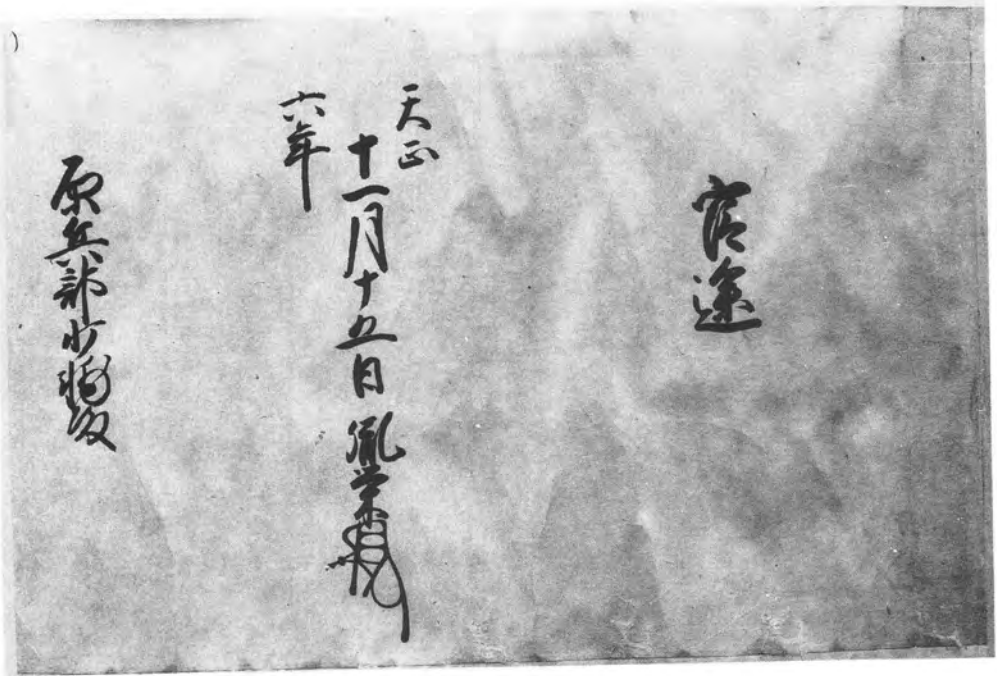 官途
天正
六年
十一月十五日 胤栄
原兵部少輔殿